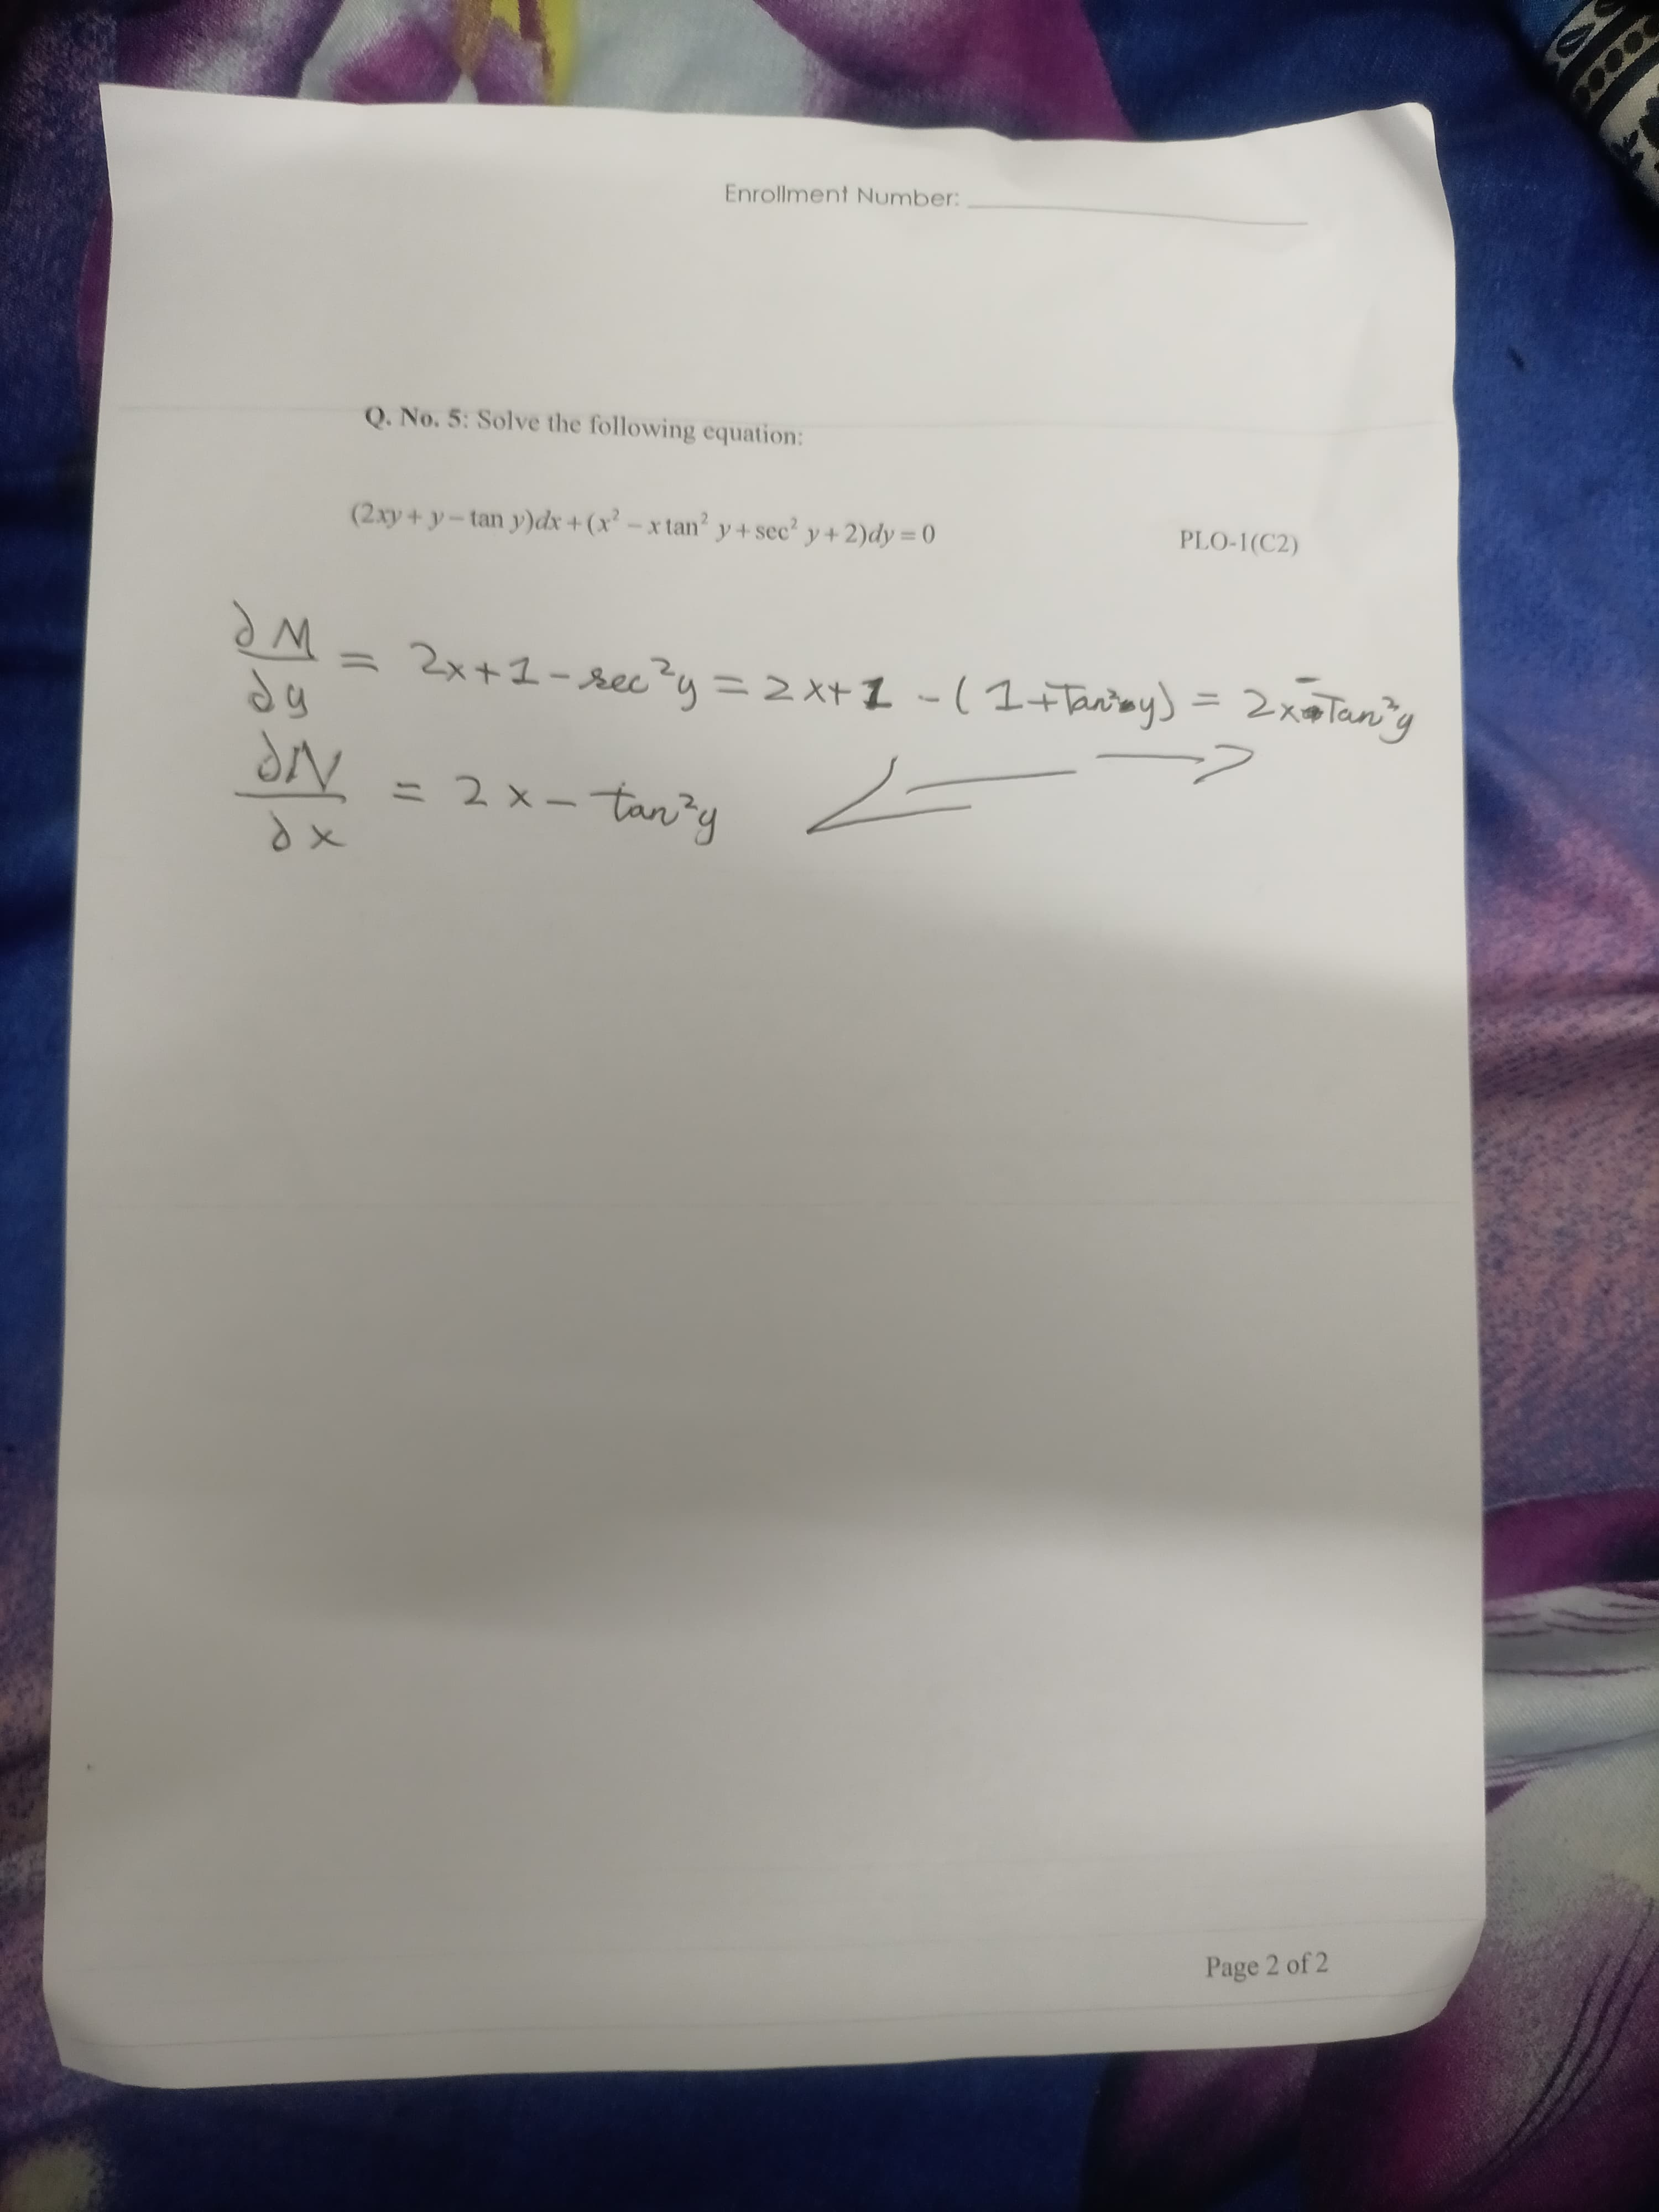 Enrollment Number: ___________
Q. No. 5: Solve the following equation:
(2xy + y − tan y)dx + (x² − x tan² y + sec² y + 2)dy = 0 PLO-1(C2)
∂M/∂y = 2x+1 − sec²y = 2x+1 − (1+Tan²y) = 2x − Tan²y
∂N/∂x = 2x − tan²y
Page 2 of 2